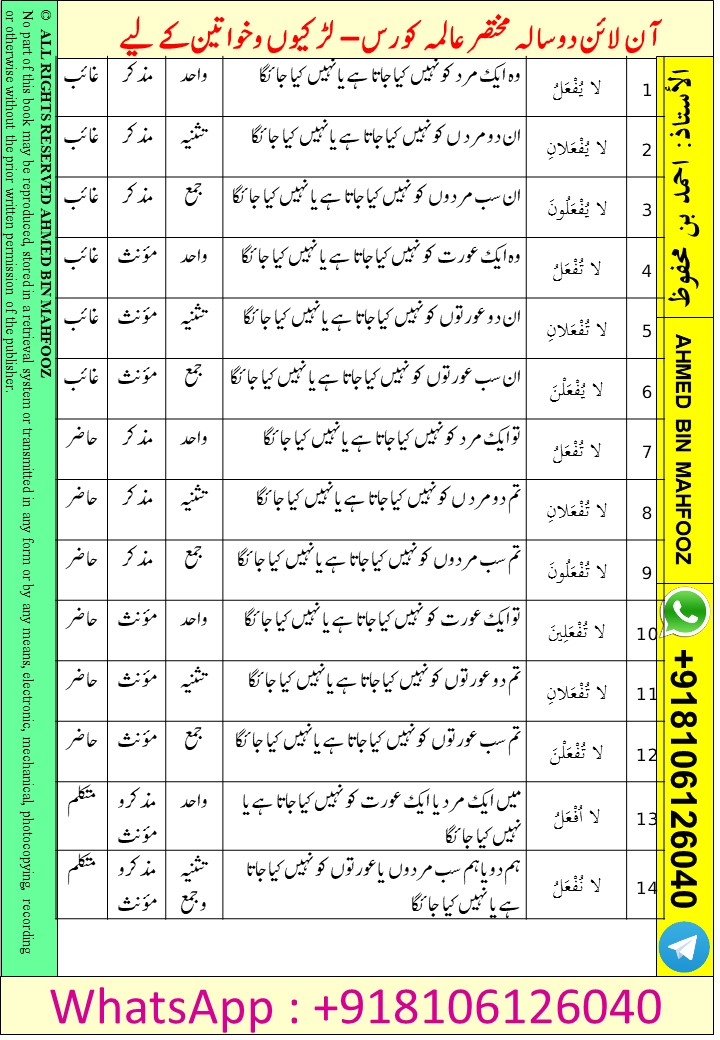 آن لائن دو سالہ مختصر عالمہ کورس – لڑکیوں و خواتین کے لیے
1 لا يُفْعَلُ وہ ایک مرد کو نہیں کیا جاتا ہے یا نہیں کیا جائگا واحد مذکر غائب
2 لا يُفْعَلانِ ان دو مردں کو نہیں کیا جاتا ہے یا نہیں کیا جائگا تثنیہ مذکر غائب
3 لا يُفْعَلُونَ ان سب مردوں کو نہیں کیا جاتا ہے یا نہیں کیا جائگا جمع مذکر غائب
4 لا تُفْعَلُ وہ ایک عورت کو نہیں کیا جاتا ہے یا نہیں کیا جائگا واحد مؤنث غائب
5 لا تُفْعَلانِ ان دو عورتوں کو نہیں کیا جاتا ہے یا نہیں کیا جائگا تثنیہ مؤنث غائب
6 لا يُفْعَلْنَ ان سب عورتوں کو نہیں کیا جاتا ہے یا نہیں کیا جائگا جمع مؤنث غائب
7 لا تُفْعَلُ تو ایک مرد کو نہیں کیا جاتا ہے یا نہیں کیا جائگا واحد مذکر حاضر
8 لا تُفْعَلانِ تم دو مردں کو نہیں کیا جاتا ہے یا نہیں کیا جائگا تثنیہ مذکر حاضر
9 لا تُفْعَلُونَ تم سب مردوں کو نہیں کیا جاتا ہے یا نہیں کیا جائگا جمع مذکر حاضر
10 لا تُفْعَلِينَ تو ایک عورت کو نہیں کیا جاتا ہے یا نہیں کیا جائگا واحد مؤنث حاضر
11 لا تُفْعَلانِ تم دو عورتوں کو نہیں کیا جاتا ہے یا نہیں کیا جائگا تثنیہ مؤنث حاضر
12 لا تُفْعَلْنَ تم سب عورتوں کو نہیں کیا جاتا ہے یا نہیں کیا جائگا جمع مؤنث حاضر
13 لا اُفْعَلُ میں ایک مرد یا ایک عورت کو نہیں کیا جاتا ہے یا واحد مذکر و متکلم
نہیں کیا جائگا مؤنث
14 لا نُفْعَلُ ہم دو یا ہم سب مردوں یا عورتوں کو نہیں کیا جاتا تثنیہ مذکر و متکلم
ہے یا نہیں کیا جائگا و جمع مؤنث
الأستاذ: احمد بن محفوظ
AHMED BIN MAHFOOZ
+918106126040
© ALL RIGHTS RESERVED AHMED BIN MAHFOOZ
No part of this book may be reproduced, stored in a retrieval system or transmitted in any form or by any means, electronic, mechanical, photocopying, recording
or otherwise without the prior written permission of the publisher.
WhatsApp : +918106126040